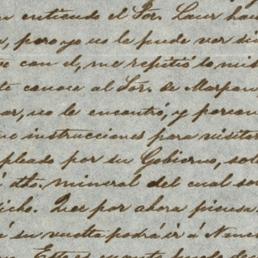 entiendo el Sor. Laur hau
, pero yo no le pude ver di
e con el, me repitió lo mis
te conoce al Sor. de Marpon
ar, no le encontró, y parecen
ne instrucciones para visitar
pleado por su Gobierno, sol
á dho. mineral del cual so
icho. Que por ahora piensa
á su vuelta podrá ir á